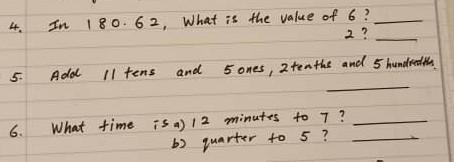 4. In 180.62, What is the value of 6? ____
2? ____
5. Add 11 tens and 5 ones, 2 tenths and 5 hundredths.
____
6. What time is a) 12 minutes to 7? ____
b) quarter to 5? ____